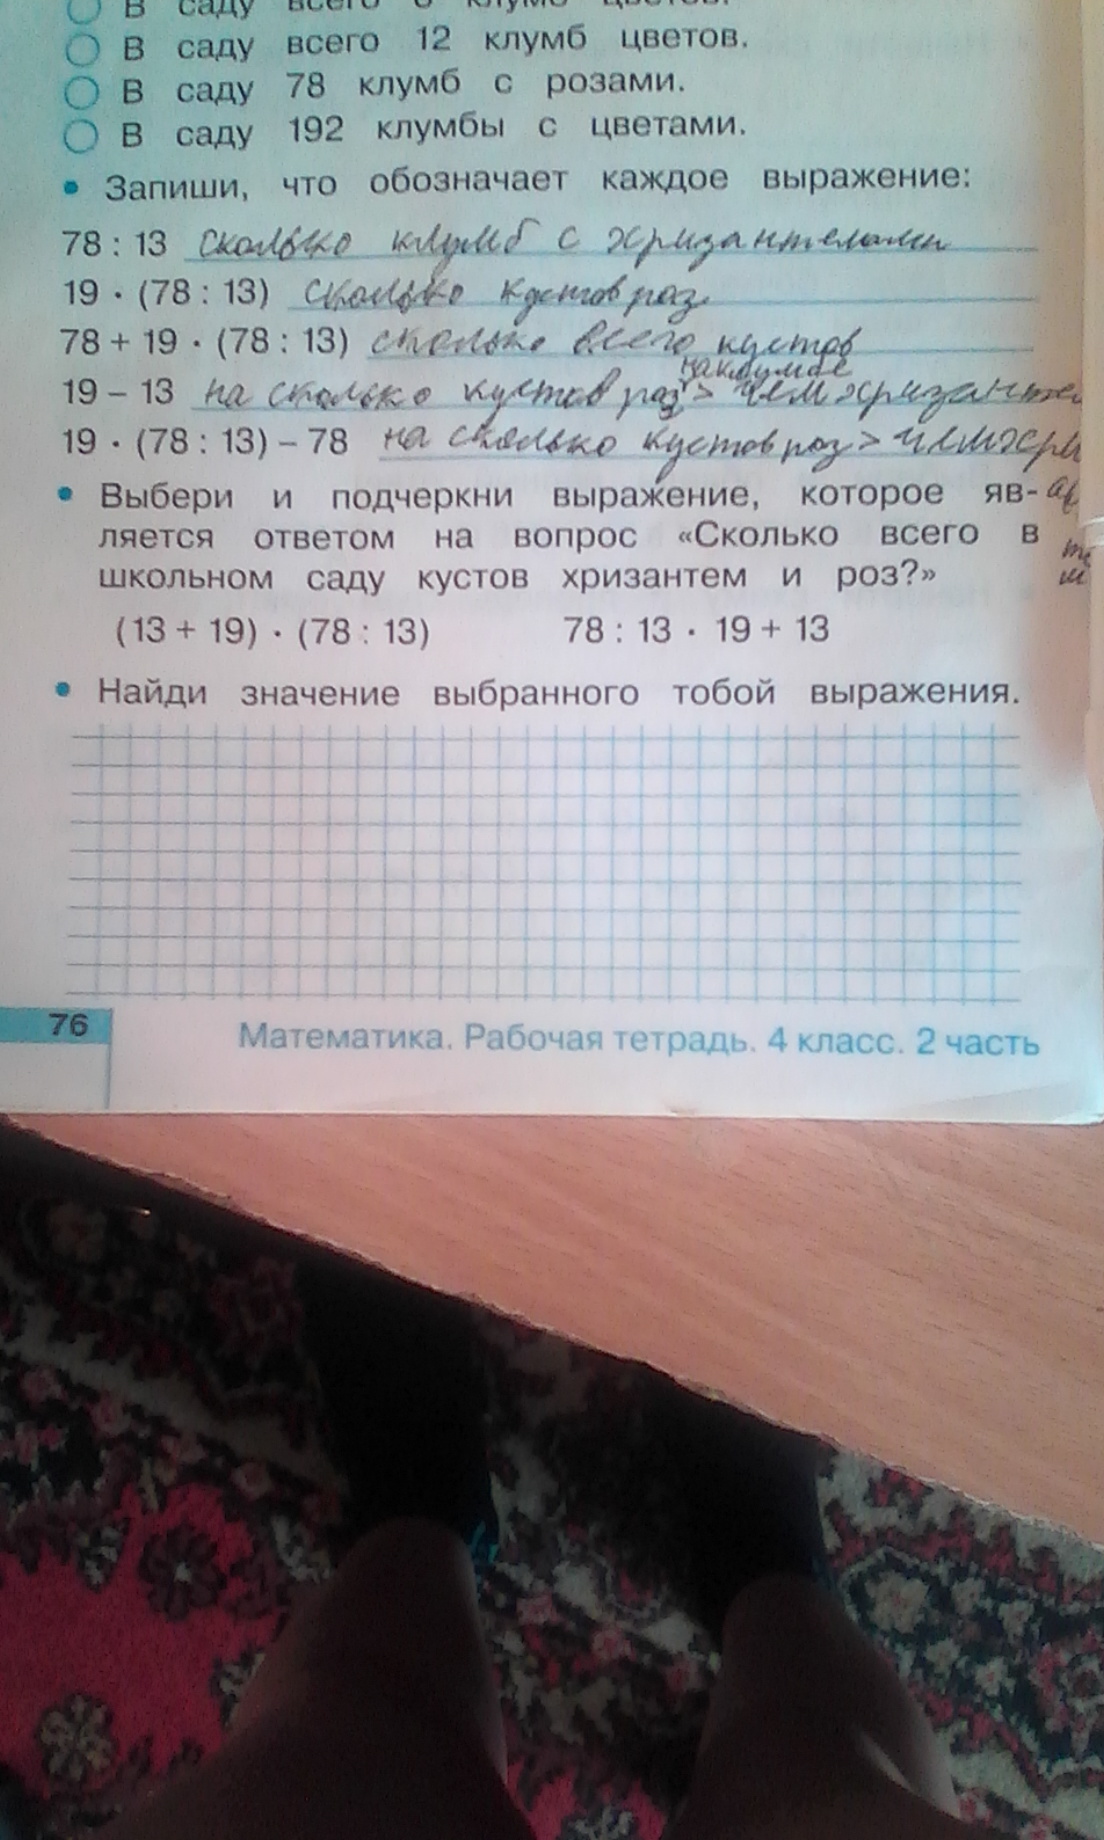 В саду всего 6 клумб цветов.
В саду всего 12 клумб цветов.
В саду 78 клумб с розами.
В саду 192 клумбы с цветами.
• Запиши, что обозначает каждое выражение:
78 : 13 сколько клумб с хризантемами
19 · (78 : 13) сколько кустов роз
78 + 19 · (78 : 13) сколько всего кустов
на клумбе
19 – 13 на сколько кустов роз > чем хризантем
19 · (78 : 13) – 78 на сколько кустов роз > чем хри
• Выбери и подчеркни выражение, которое яв-
ляется ответом на вопрос «Сколько всего в
школьном саду кустов хризантем и роз?»
(13 + 19) · (78 : 13) 78 : 13 · 19 + 13
• Найди значение выбранного тобой выражения.
76
Математика. Рабочая тетрадь. 4 класс. 2 часть